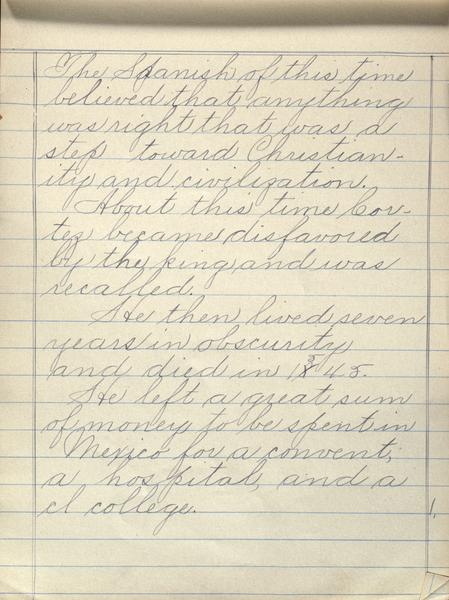 The Spanish of this time
believed that anything
was right that was a
step toward Christian-
ity and civilization.
About this time Cor-
tez became disfavored
by the king and was
recalled.
He then lived seven
years in obscurity
and died in 1545.
He left a great sum
of money to be spent in
Mexico for a convent,
a hospital, and a
cl college.
1,